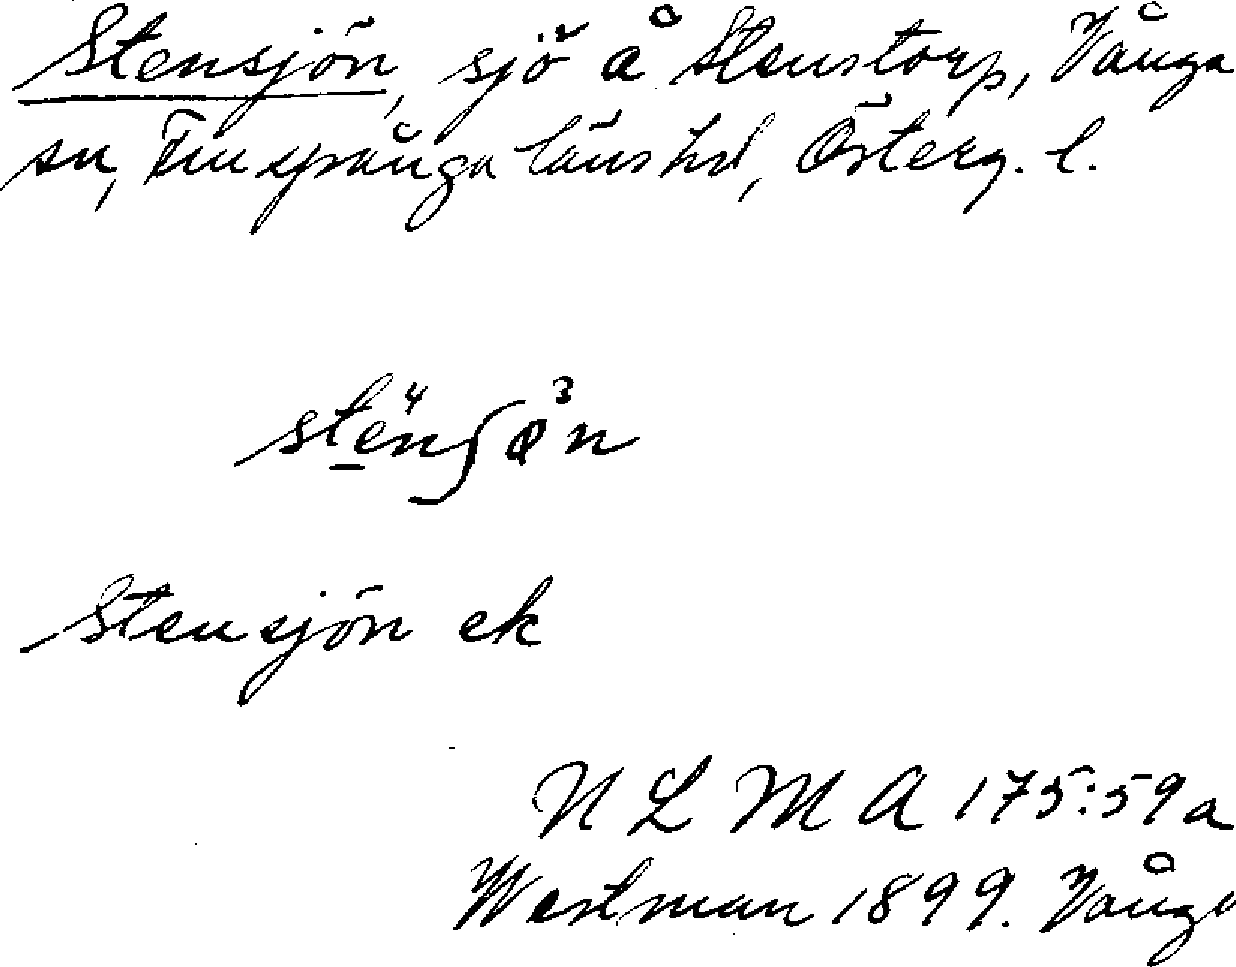 Stensjön, sjö å Stenstorp, Vånga
sn, Finspånga läns hd, Österg. l.
ste̱⁴nʃø³n
Stensjön ek
N L M A 175:59a
Westman 1899. Vånga